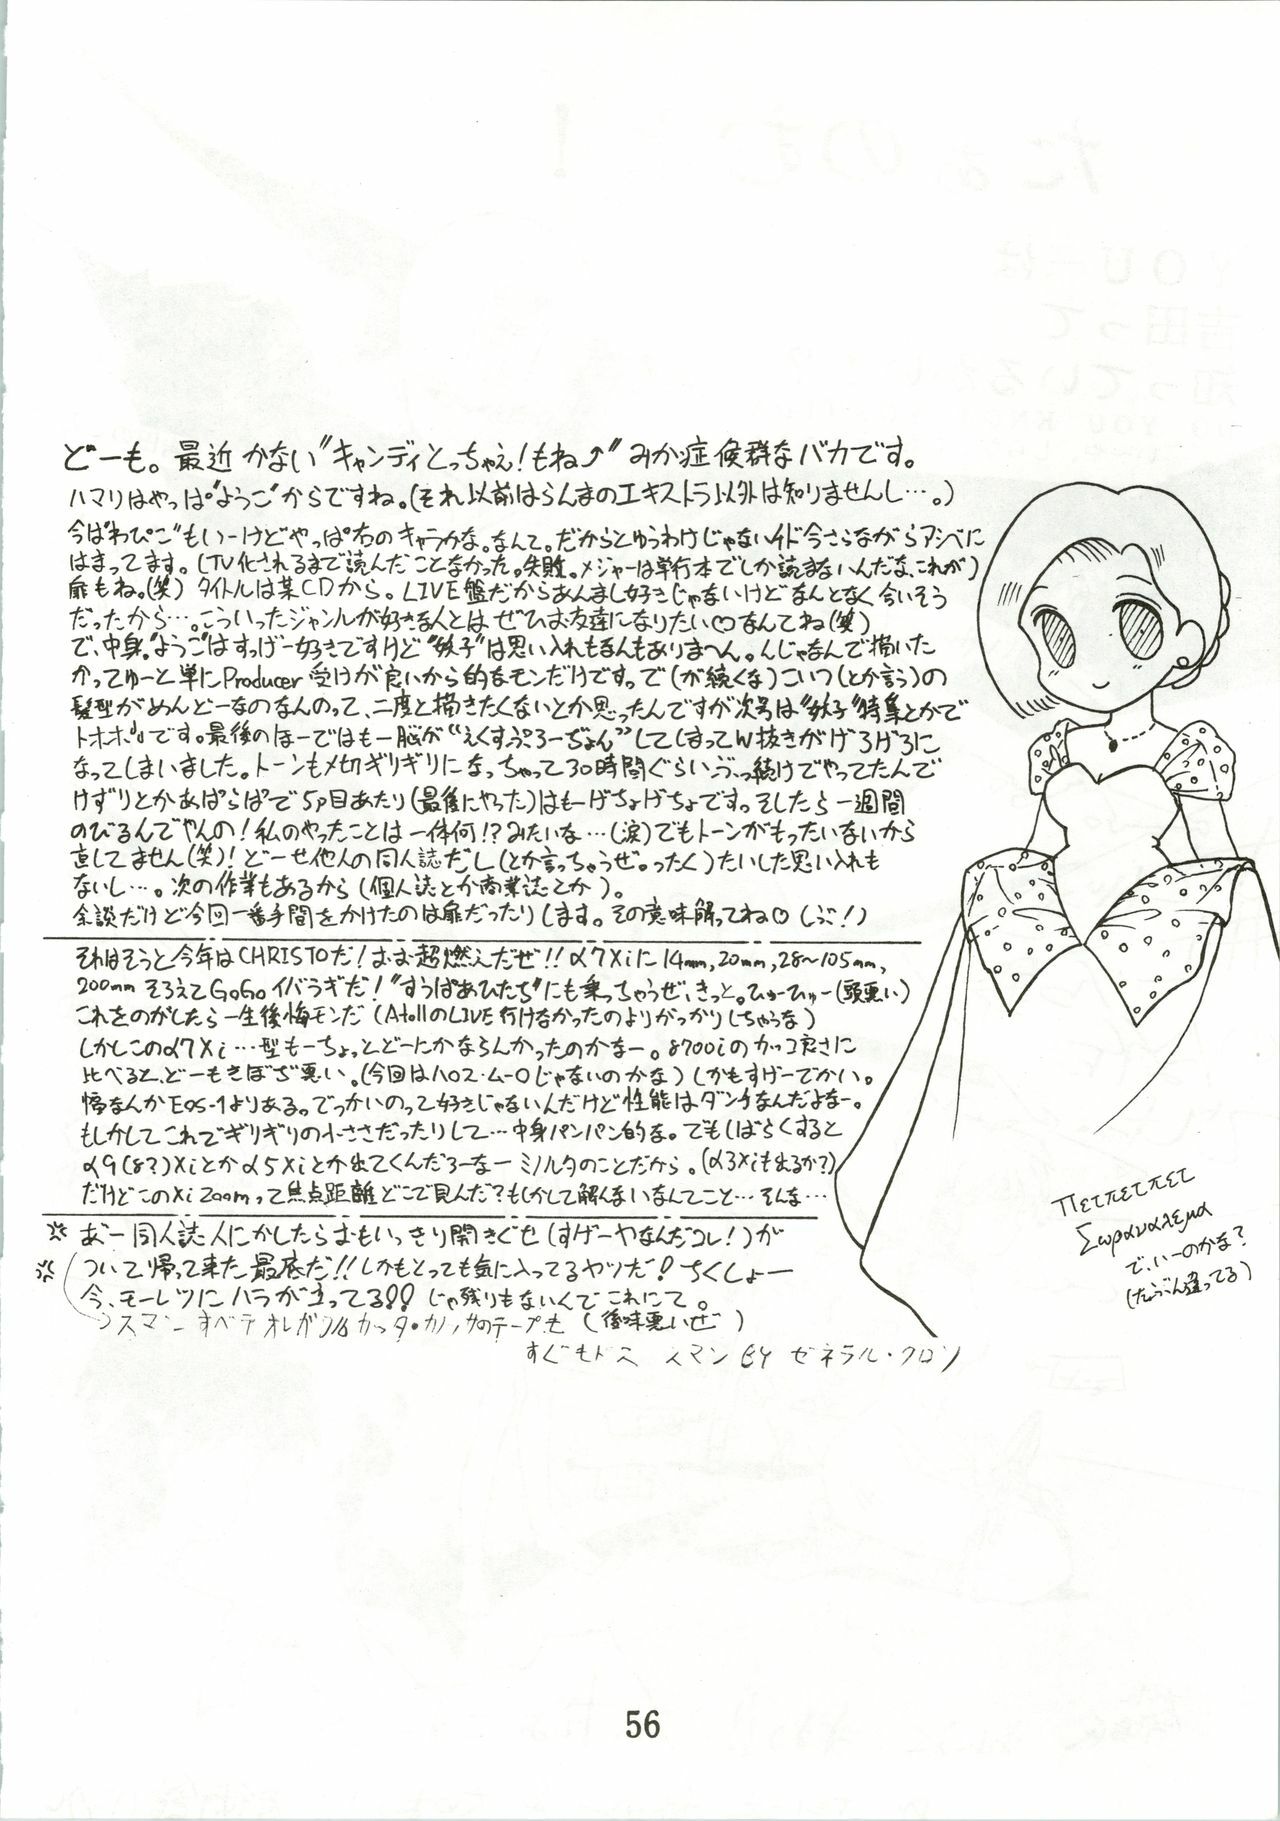 どーも。最近かない"キャンディとっちゃえ!もね⤴"みか症候群なバカです。
ハマリはやっぱ"ようこ"からですね。(それ以前はらんまのエキストラ以外は知りませんし…。)
今ば"わぴこ"もいーけどやっぱ右のキャラかな。なんて。だからとゆうわけじゃないけど今さらながらアシベに
はまってます。(TV化されるまで読んだことなかった。失敗。メジャーは単行本でしか読まないんだな、これが)
扉もね。(笑) タイトルは某CDから。LIVE盤だからあんまし好きじゃないけどなんとなく合いそう
だったから…。こういったジャンルが好きな人とはぜひお友達になりたい♡なんてね(笑)
で、中身。"ようこ"はすっげー好きですけど"妖子"は思い入れもなんもありませーん。んじゃなんで描いた
かってゆーと単にProducer受けが良いから的なモンだけです。っで(が続くな)こいつ(とか言う)の
髪型がめんどーなのなんのって、二度と描きたくないとか思ったんですが次号は"妖子"特集とかで
トホホ。です。最後のほーではもー脳が"えくすぷろーぢょん"してしまってW抜きがげろげろに
なってしまいました。トーンも〆切ギリギリになっちゃって30時間ぐらいぶっ続けでやってたんで
けずりとかあぱらぱで5p目あたり(最後にやった)はもーげちょげちょです。そしたら一週間
のびるんでやんの!私のやったことは一体何!?みたいな…(涙)でもトーンがもったいないから
直してません(笑)!どーせ他人の同人誌だし(とか言っちゃうぜ。ったく)たいした思い入れも
ないし…。次の作業もあるから(個人誌とか商業誌とか)。
余談だけど今回一番手間をかけたのは扉だったりします。その意味解ってね♡(しぶ!)
それはそうと今年はCHRISTOだ!おお超燃えだぜ!!α7Xiに14mm,20mm,28〜105mm,
200mmそろえてGoGoイバラギだ!"すうぱあひたち"にも乗っちゃうぜ、きっと。ひゅーひゅー(頭悪い)
これをのがしたら一生後悔モンだ(AtollのLIVE行けなかったのよりがっかりしちゃうな)
しかしこのα7Xi…型もーちょっとどーにかならんかったのかなー。8700iのカッコ良さに
比べると、どーもきぼぢ悪い。(今回はハロス・ムーロじゃないのかな)しかもすげーでかい。
幅なんかEOS-1よりある。でっかいのって好きじゃないんだけど性能はダンチなんだよなー。
もしかしてこれでギリギリの小ささだったりして…中身パンパン的な。でもしばらくすると
α9(8?)Xiとかα5Xiとか出てくんだろーなーミノルタのことだから。(α3Xiも出るか?)
だけどこのXi Zoomって焦点距離どこで見んだ?もしかして解んないなんてこと…そんな…
あー同人誌人にかしたらおもいっきり開きぐせ(すげーやなんだコレ!)が
ついて帰って来た最底だ!!しかもとっても気に入ってるヤツだ!ちくしょー
今、モーレツにハラが立ってる!!じゃ残りもないんでこれにて。
スマン すべテオレガ カッタ・カノッサのテープも (後味悪いぜ)
すぐもドス スマン BY ゼネラル・クロン
Πετπετπετ
Σωραναλεμα
で、いーのかな?
(たぶん違ってる)
56